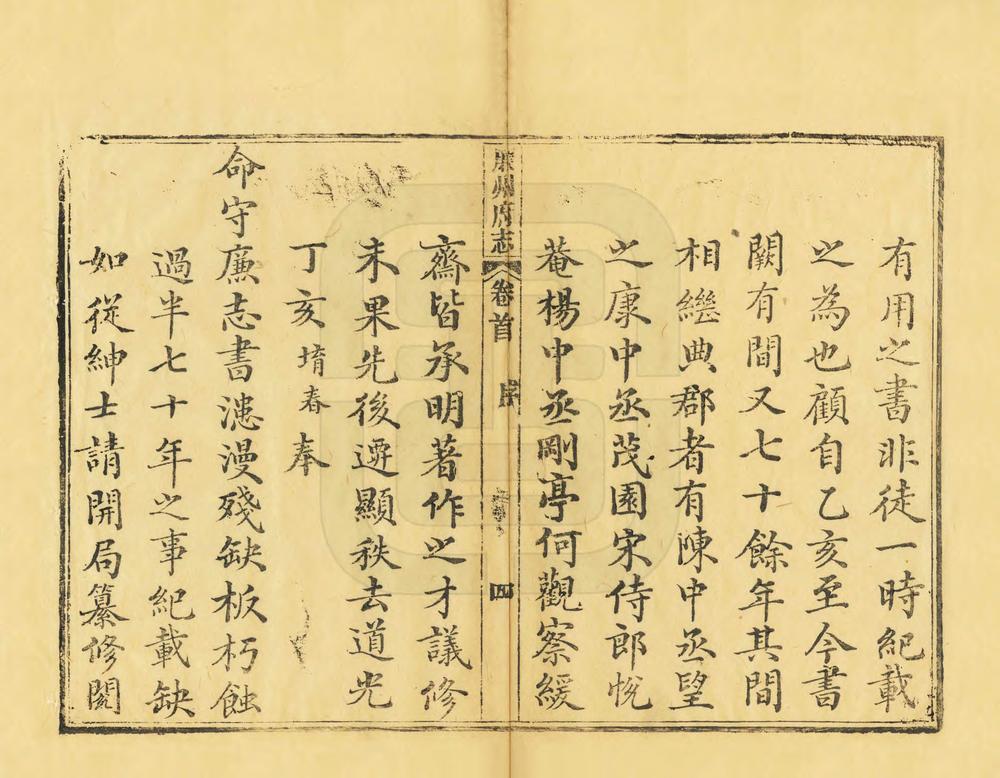 有用之書非徒一時紀載
之為也顧自乙亥至今書
闕有間又七十餘年其間
相繼典郡者有陳中丞望
之康中丞茂園宋侍郎悅
菴楊中丞剛亭何觀察緩
廉州府志 卷首 序 四
齋皆承明著作之才議修
未果先後遷顯秩去道光
丁亥堉春奉
命守廉志書漶漫殘缺板朽蝕
過半七十年之事紀載缺
如從紳士請開局纂修閱